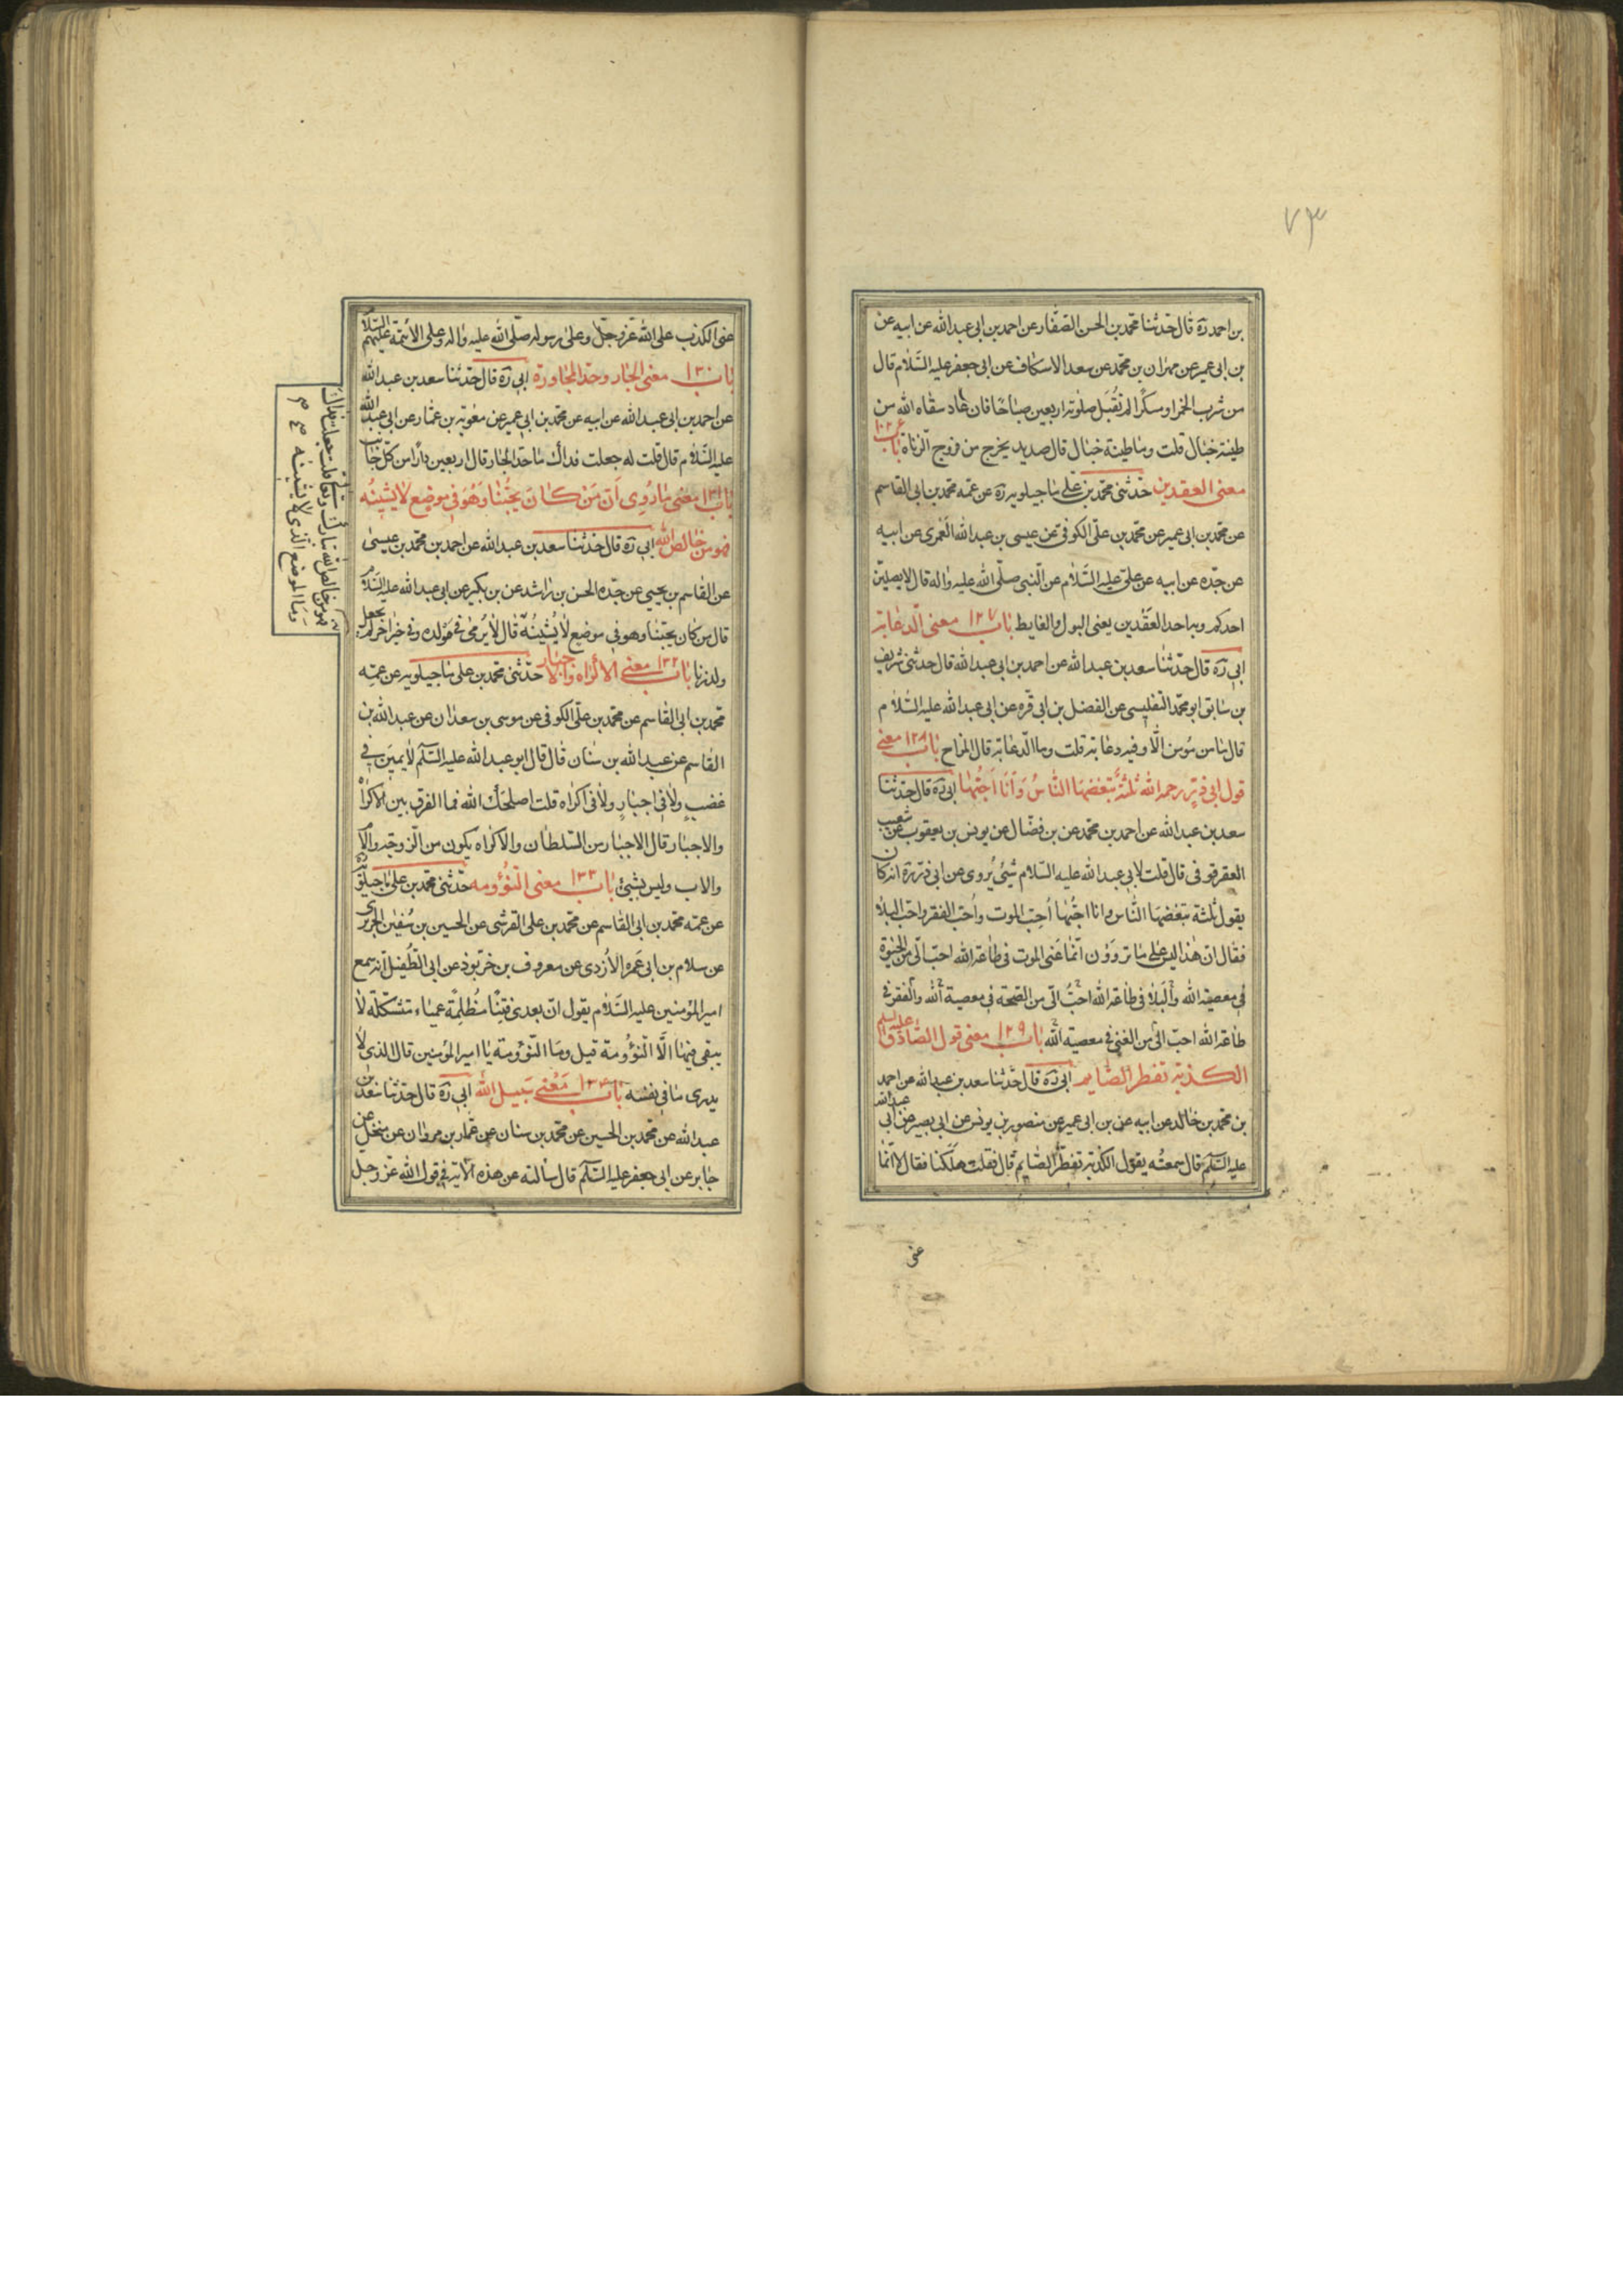 ٧٣
بن احمد ره قال حدثنا محمد بن الحسن الصفار عن احمد بن ابی عبدالله عن ابیه عن
بن ابی عمیر عن مهران بن محمد عن سعد الاسکاف عن ابی جعفر علیه السلام قال
من شرب الخمر او سکرا لم تقبل صلوته اربعین صباحا فان عاد سقاه الله من
طینة خبال قلت وما طینة خبال قال صدید یخرج من فروج الزناة باب
معنی العقدین حدثنی محمد بن علی ماجیلویه ره عن عمه محمد بن ابی القاسم
عن محمد بن ابی عمیر عن محمد بن علی الکوفی عن عیسی بن عبدالله العمری عن ابیه
عن جده عن ابیه عن علی علیه السلام عن النبی صلی الله علیه واله قال لا یصلین
احدکم وبه احد العقدین یعنی البول والغایط باب ١٢٧ معنی الدعابة
ابی ره قال حدثنا سعد بن عبدالله عن احمد بن ابی عبدالله قال حدثنی شریف
بن سابق ابو محمد التفلیسی عن الفضل بن ابی قره عن ابی عبدالله علیه السلام
قال ما من مؤمن الا وفیه دعابة قلت وما الدعابة قال المزاح باب ١٢٨ معنی
قول ابی ذر رحمه الله ثلثة تبغضها الناس وانا احبها ابی ره قال حدثنا
سعد بن عبدالله عن احمد بن محمد عن بن فضال عن یونس بن یعقوب عن شعیب
العقرقوفی قال قلت لابی عبدالله علیه السلام شیئ یروی عن ابی ذر ره انه کان
یقول ثلثة تبغضها الناس وانا احبها احب الموت واحب الفقر واحب البلا
فقال ان هذا لیس علی ما تروون انما عنی الموت فی طاعة الله احب الی من الحیوة
فی معصیة الله والبلا فی طاعة الله احب الی من الصحة فی معصیة الله والفقر فی
طاعة الله احب الی من الغنی فی معصیة الله باب ١٢٩ معنی قول الصادق علیه السلم
الکذبة تفطر الصایم ابی ره قال حدثنا سعد بن عبدالله عن احمد
بن محمد بن خالد عن ابیه عن بن ابی عمیر عن منصور بن یونس عن ابی بصیر عن ابی عبدالله
علیه السلم قال سمعته یقول الکذبة تفطر الصایم قال فقلت هلکنا فقال لا انما
عنی
عنی الکذب علی الله عز وجل وعلی رسوله صلی الله علیه واله وعلی الائمة علیهم السلام
باب ١٣٠ معنی الجار وحد المجاورة ابی ره قال حدثنا سعد بن عبدالله
عن احمد بن ابی عبدالله عن ابیه عن محمد بن ابی عمیر عن معویة بن عمار عن ابی عبدالله
علیه السلام قال قلت له جعلت فداک ما حد الجار قال اربعین دارا من کل جانب
باب ١٣١ معنی ما روی ان من کان یحبنا وهو فی موضع لا یشینه
فهو من خالص الله ابی ره قال حدثنا سعد بن عبدالله عن احمد بن محمد بن عیسی
عن القاسم بن یحیی عن جده الحسن بن راشد عن بن بکیر عن ابی عبدالله علیه السلام
قال من کان یحبنا وهو فی موضع لا یشینه قال لا یرمی فی مولده وفی خبر اخر لم یجعل
ولد زنا باب ١٣٢ معنی الاکراه والاجبار حدثنی محمد بن علی ماجیلویه عن عمه
محمد بن ابی القاسم عن محمد بن علی الکوفی عن موسی بن سعدان عن عبدالله بن
القاسم عن عبدالله بن سنان قال قال ابو عبدالله علیه السلم لا یمین فی
غضب ولا فی اجبار ولا فی اکراه قلت اصلحک الله فما الفرق بین الاکراه
والاجبار قال الاجبار من السلطان والاکراه یکون من الزوجة والام
والاب ولیس بشیئ باب ١٣٣ معنی النؤومه حدثنی محمد بن علی ماجیلویه
عن عمه محمد بن ابی القاسم عن محمد بن علی القرشی عن الحسین بن سفین الجریری
عن سلام بن ابی عمره الازدی عن معروف بن خربوذ عن ابی الطفیل انه سمع
امیر المؤمنین علیه السلام یقول ان بعدی فتنا مظلمة عمیاء متشکلة لا
یبقی فیها الا النؤومة قیل وما النؤومة یا امیر المؤمنین قال الذی لا
یدری ما فی نفسه باب ١٣٤ معنی سبیل الله ابی ره قال حدثنا سعد بن
عبدالله عن محمد بن الحسین عن محمد بن سنان عن عمار بن مروان عن منخل عن
جابر عن ابی جعفر علیه السلم قال سالته عن هذه الایة فی قول الله عز وجل
فهو من خالص الله تبارک وتعالی قلت جعلت فداک
وما الموضع الذی لا یشینه